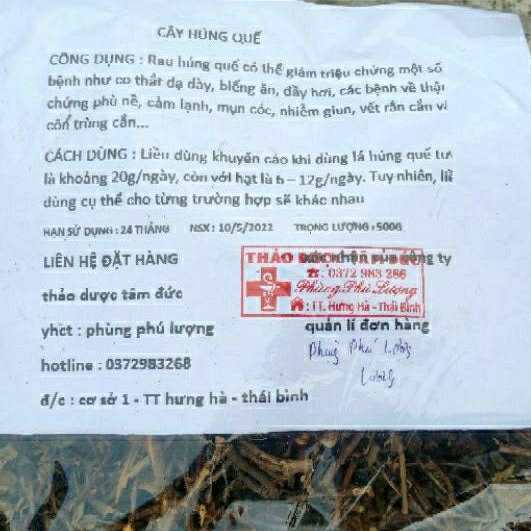 CÂY HÚNG QUẾ
CÔNG DỤNG : Rau húng quế có thể giảm triệu chứng một số
bệnh như co thắt dạ dày, biếng ăn, đầy hơi, các bệnh về thận
chứng phù nề, cảm lạnh, mụn cóc, nhiễm giun, vết rắn cắn
côn trùng cắn...
CÁCH DÙNG : Liều dùng khuyến cáo khi dùng lá húng quế
là khoảng 20g/ngày, còn với hạt là 6 – 12g/ngày. Tuy nhiên,
dùng cụ thể cho từng trường hợp sẽ khác nhau
HẠN SỬ DỤNG : 24 THÁNG NSX : 10/5/2022 TRỌNG LƯỢNG : 500G
LIÊN HỆ ĐẶT HÀNG
xác nhận của công ty
THẢO
: 0372 983 286
Phùng Phú Lượng
: TT. Hưng Hà - Thái Bình
thảo dược tâm đức
yhct : phùng phú lượng
quản lí đơn hàng
hotline : 0372983268
Phùng Phú Lượng
Lượng
đ/c : cơ sở 1 - TT hưng hà - thái bình